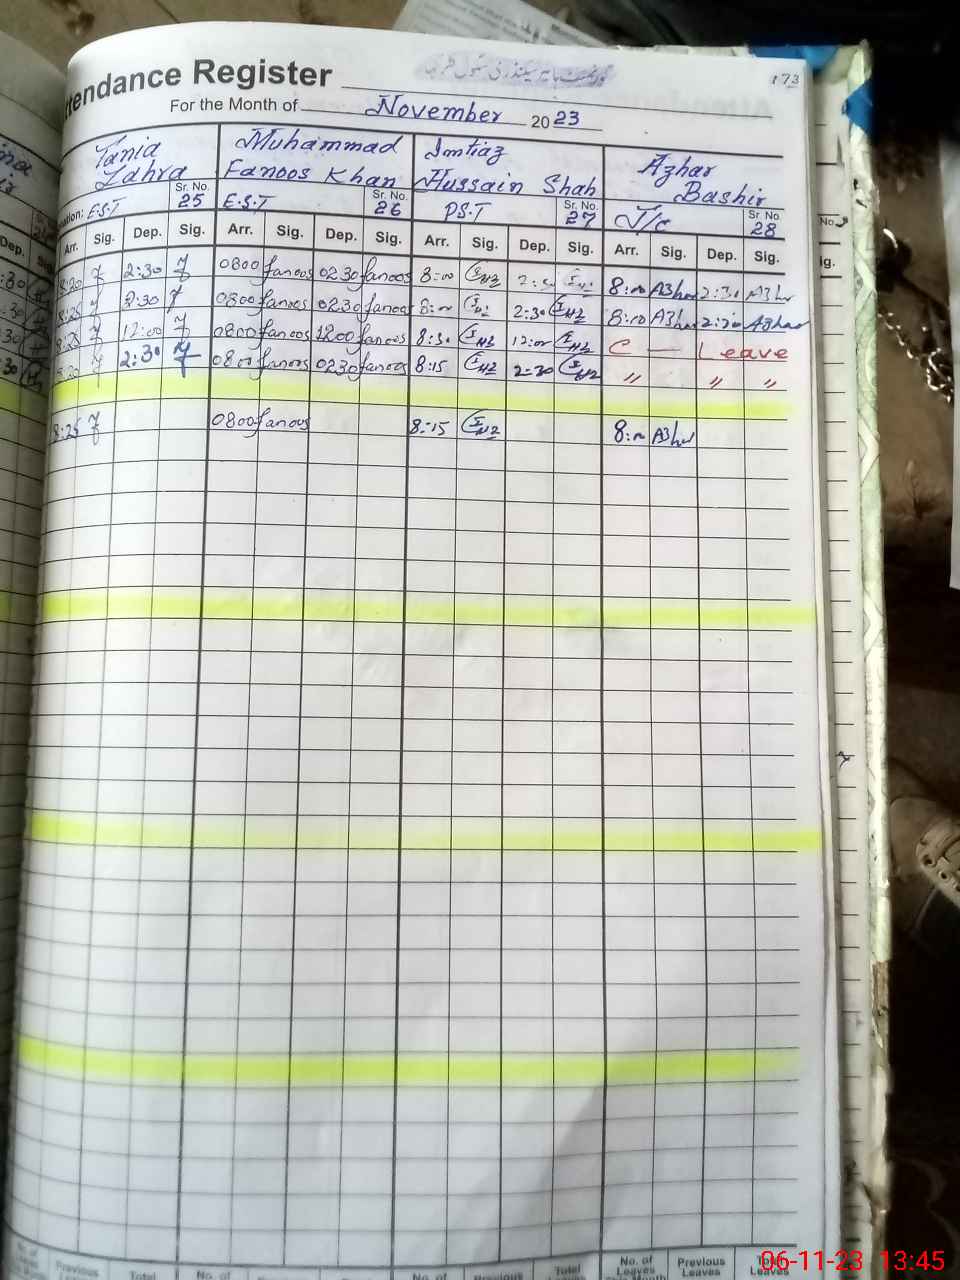 Attendance Register
173
For the Month of November 2023
Tania Zahra
Muhammad Fanoos Khan
Imtiaz Hussain Shah
Azhar Bashir
E.S.T Sr. No. 25
E.S.T Sr. No. 26
P.S.T Sr. No. 27
J/c Sr. No. 28
Arr. Sig. Dep. Sig. Arr. Sig. Dep. Sig. Arr. Sig. Dep. Sig. Arr. Sig. Dep. Sig.
8:20 2:30 0800 fanoos 0230 fanoos 8:00 8:00 Azhar 2:30 Azhar
8:25 2:30 0800 fanoos 0230 fanoos 8:00 2:30 8:00 Azhar 2:30 Azhar
8:25 12:00 0800 fanoos 1200 fanoos 8:30 12:00 C — Leave
8:20 2:30 0800 fanoos 0230 fanoos 8:15 2:30 〃 〃 〃
8:25 0800 fanoos 8:15 8:00 Azhar
Previous Total No. of Previous Total No. of Previous Total No. of Leaves Previous Leaves Total Leaves
06-11-23 13:45